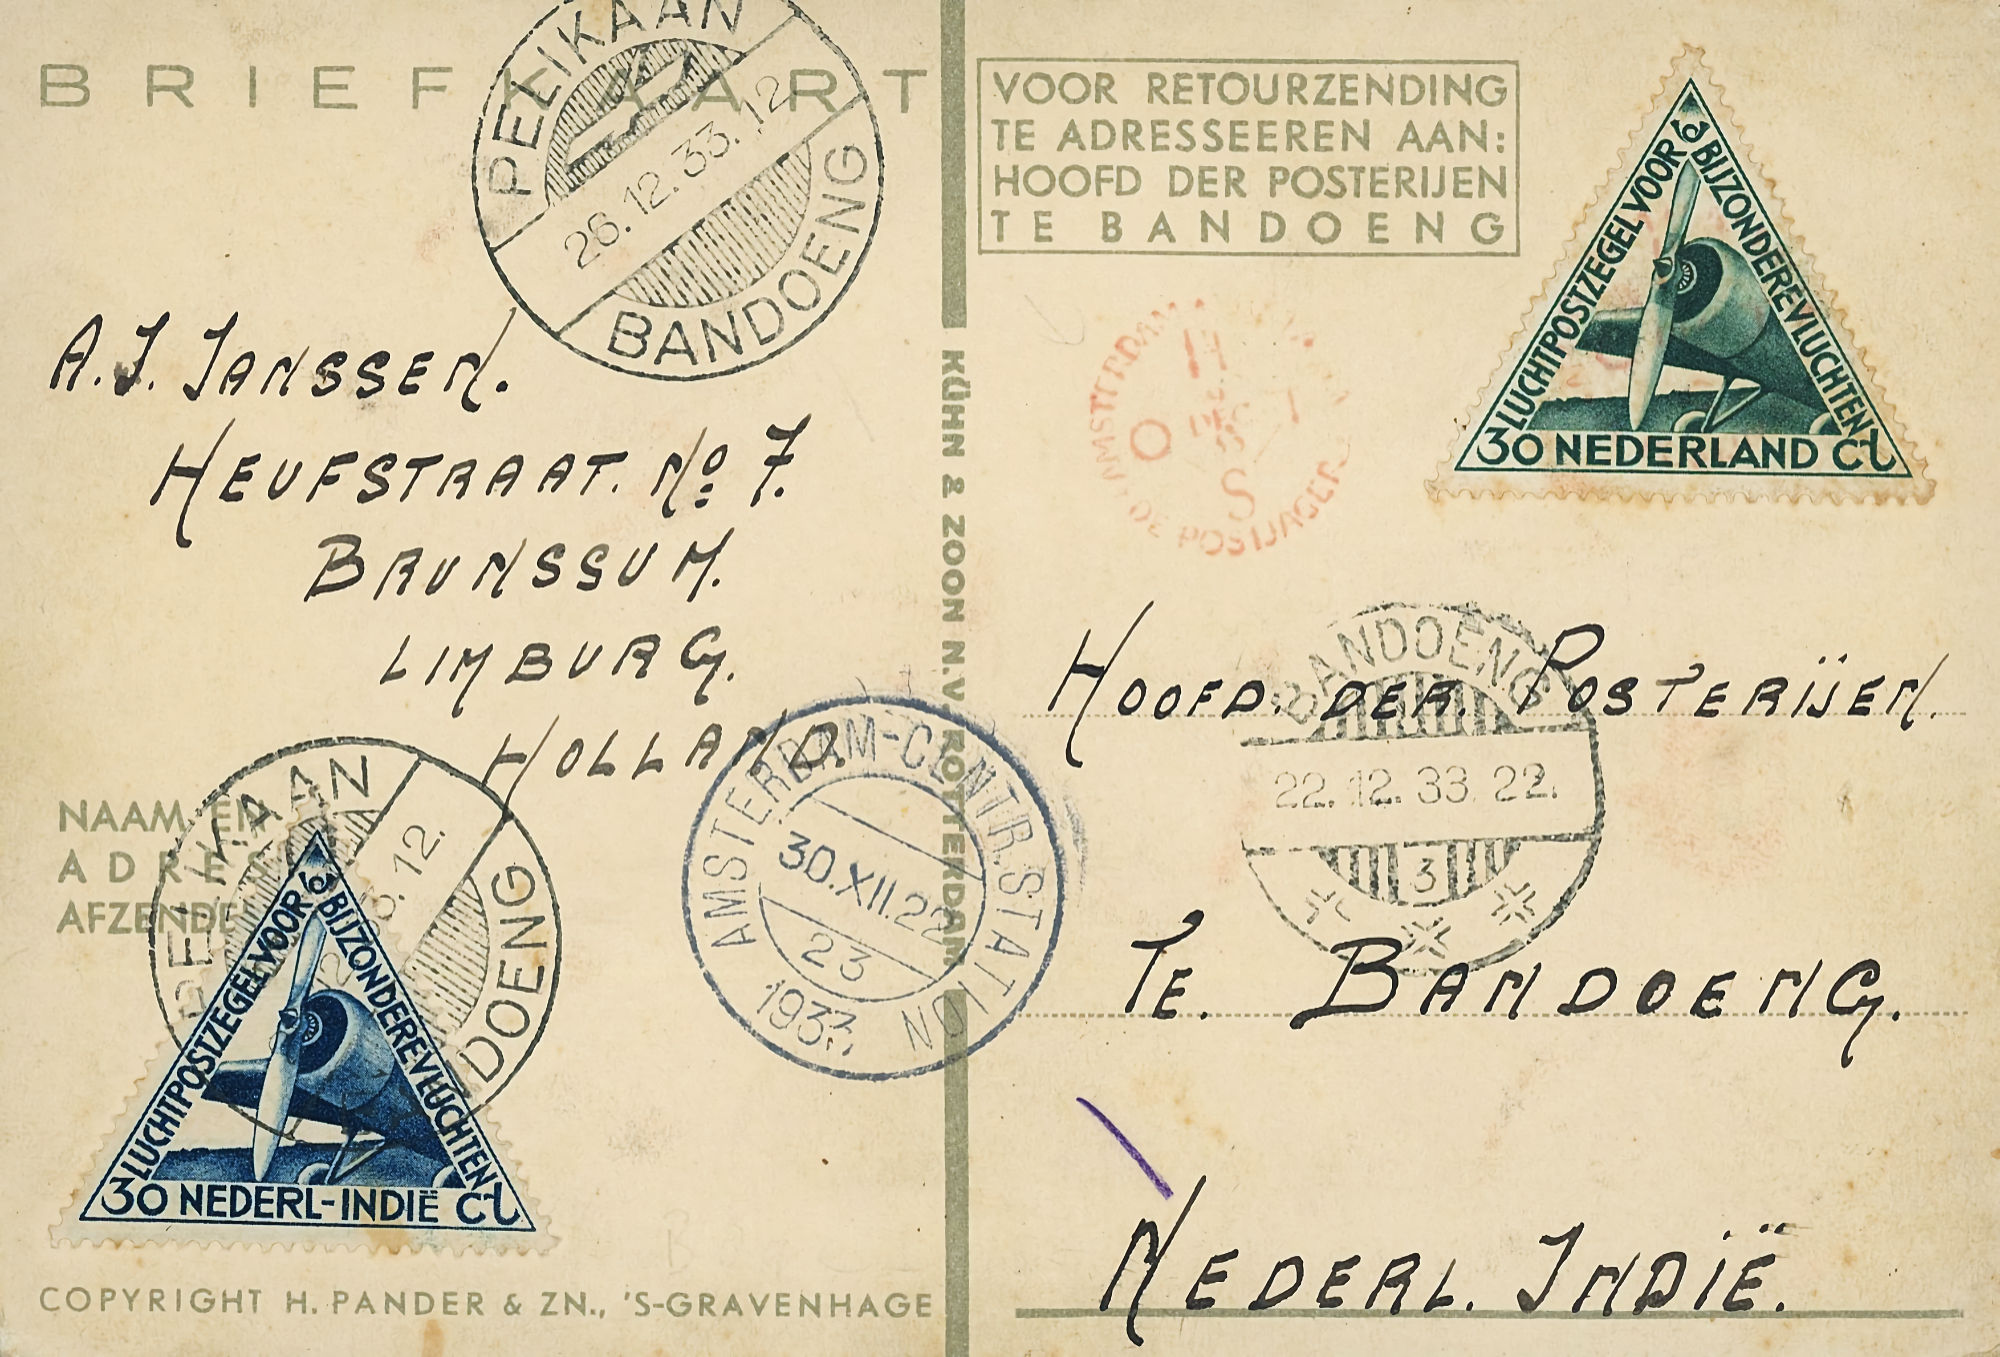 BRIEFKAART
PELIKAAN
26.12.33.12
BANDOENG
A.J. JANSSEN.
HEUFSTRAAT. No 7.
BRUNSSUM.
LIMBURG.
HOLLAND.
NAAM EN
ADRES
AFZENDE
PELIKAAN
12.
DOENG
LUCHTPOSTZEGEL VOOR BIJZONDERE VLUCHTEN
30 NEDERL-INDIË Ct
COPYRIGHT H. PANDER & ZN., 'S-GRAVENHAGE
KÜHN & ZOON N.V. ROTTERDAM
AMSTERDAM-CENTR.STATION
30.XII.22
23
1933
VOOR RETOURZENDING
TE ADRESSEEREN AAN:
HOOFD DER POSTERIJEN
TE BANDOENG
LUCHTPOSTZEGEL VOOR BIJZONDERE VLUCHTEN
30 NEDERLAND Ct
AMSTERDAM
H
O
S
DE POSTJAGER
BANDOENG
22.12.33.22.
3
HOOFD. DER. POSTERIJEN.
TE. BANDOENG.
NEDERL. INDIË.